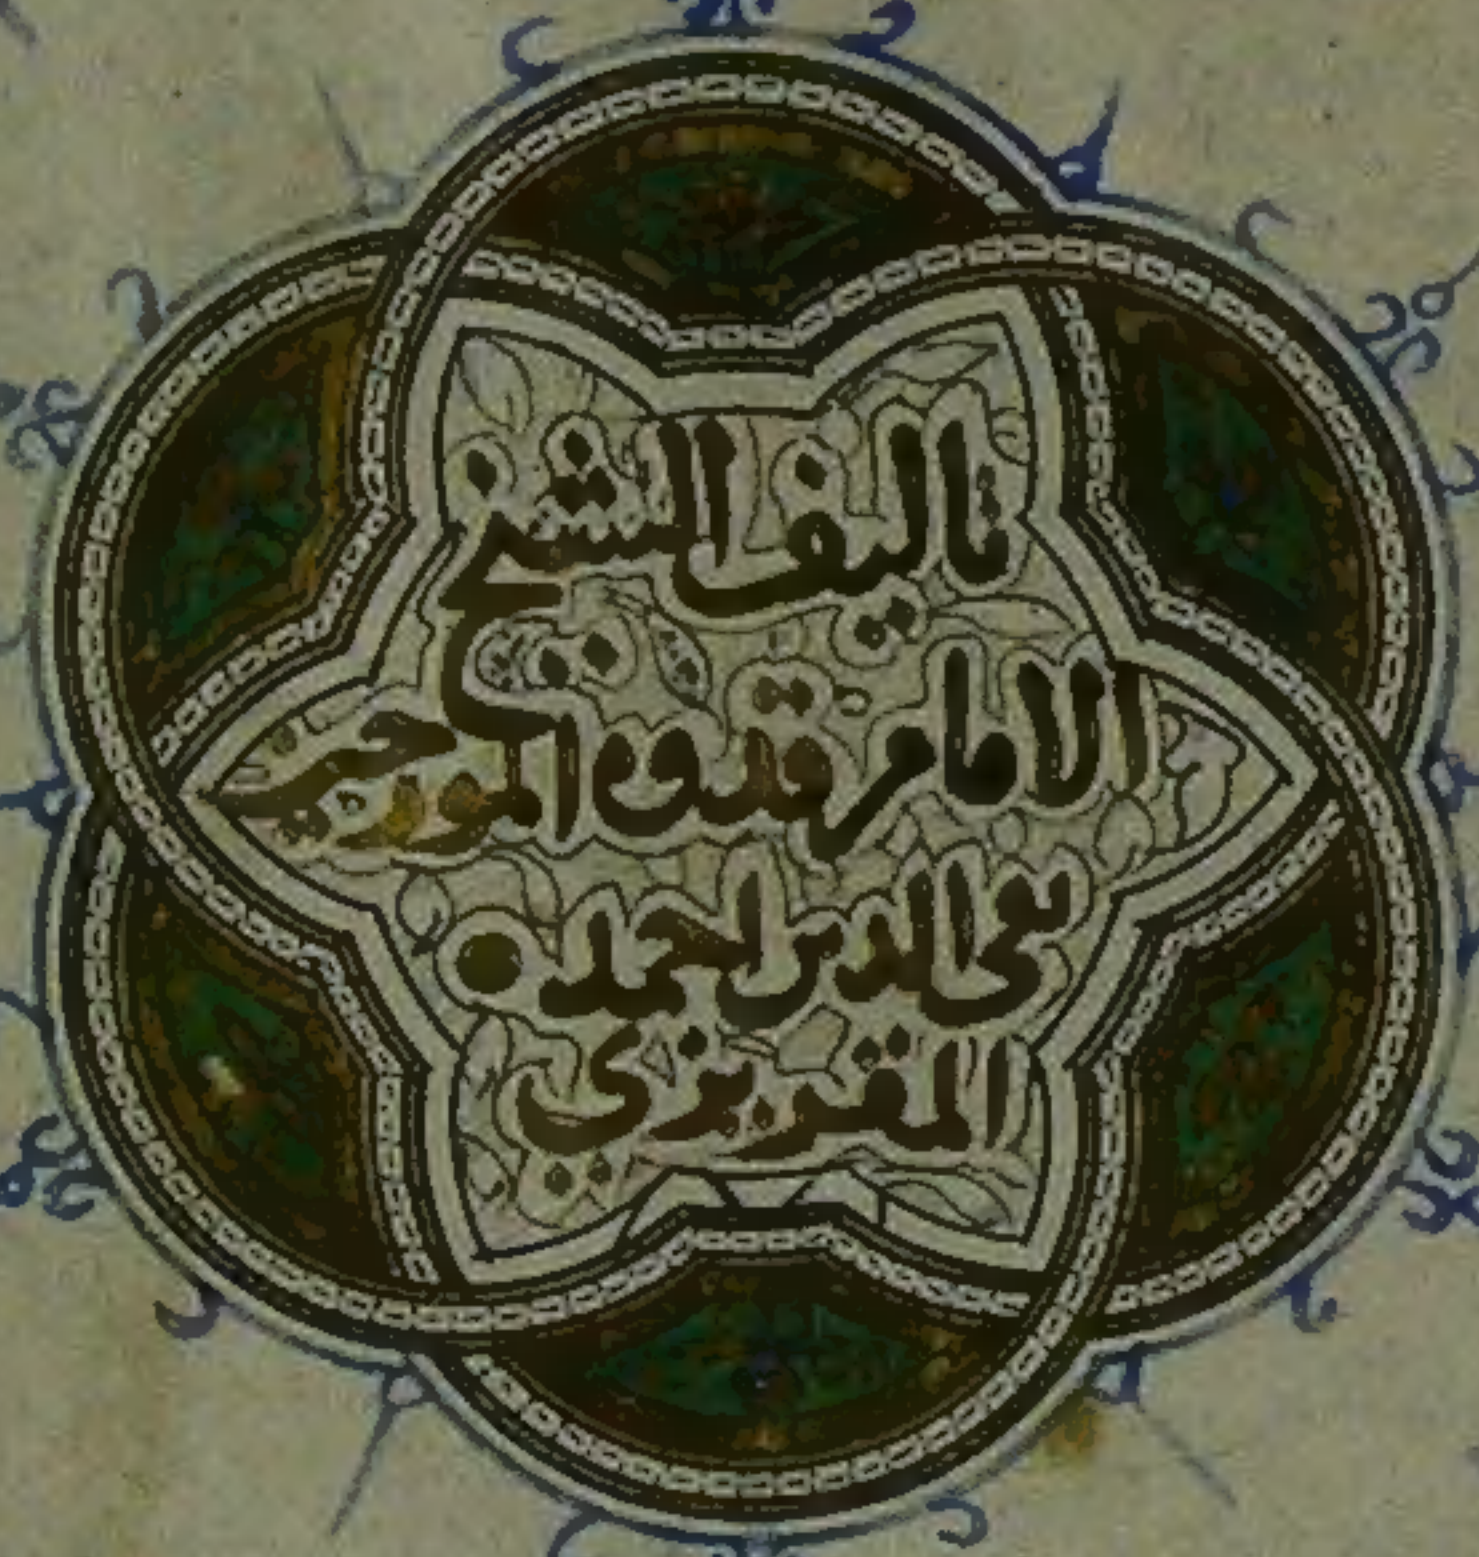 تاليف الشيخ
الامام قدوة المورخين
تقي الدين احمد
المقريزي